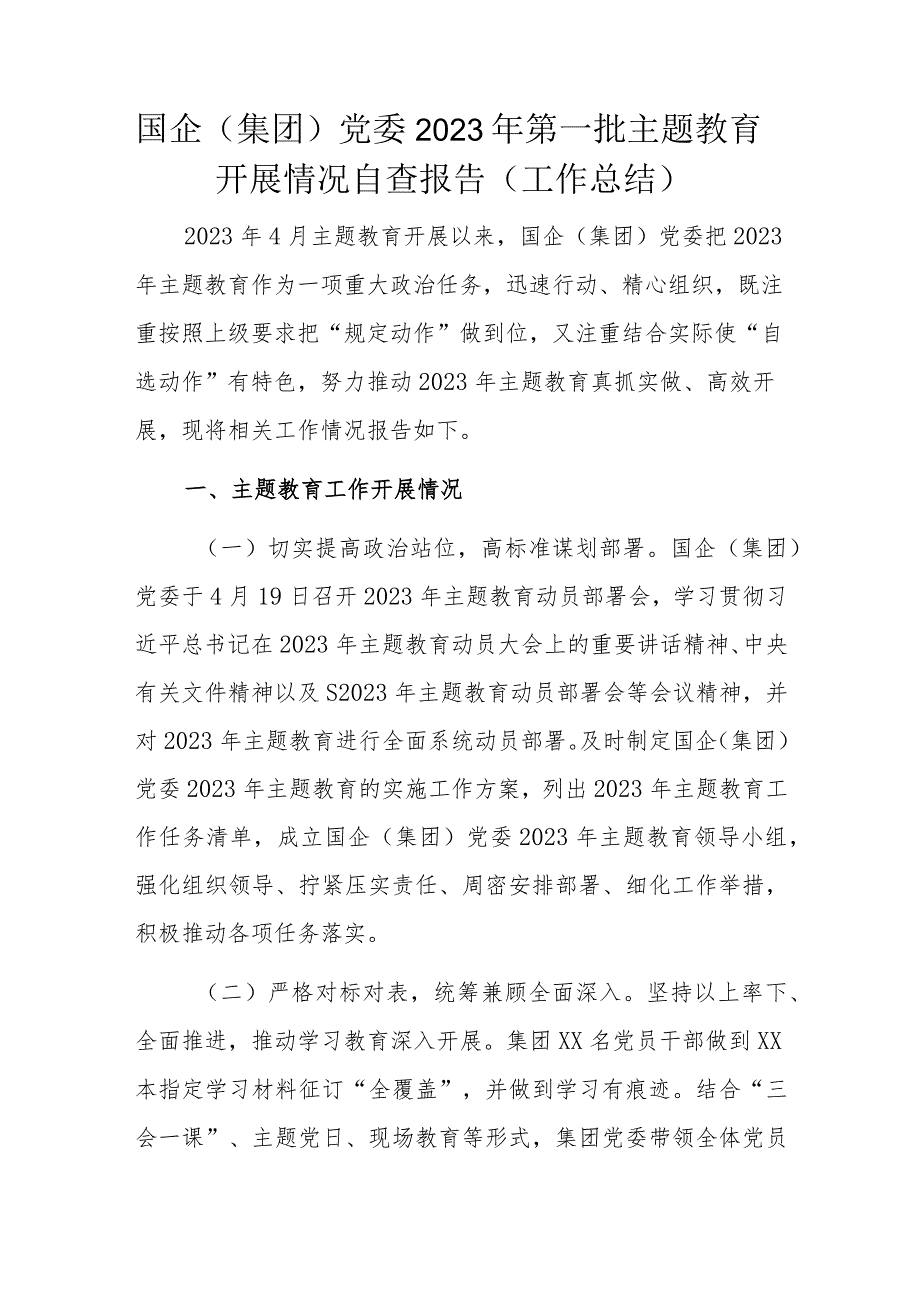 国企（集团）党委 2023 年第一批主题教育
开展情况自查报告（工作总结）
2023 年 4 月主题教育开展以来，国企（集团）党委把 2023
年主题教育作为一项重大政治任务，迅速行动、精心组织，既注
重按照上级要求把“规定动作”做到位，又注重结合实际使“自
选动作”有特色，努力推动 2023 年主题教育真抓实做、高效开
展，现将相关工作情况报告如下。
一、主题教育工作开展情况
（一）切实提高政治站位，高标准谋划部署。国企（集团）
党委于 4 月 19 日召开 2023 年主题教育动员部署会，学习贯彻习
近平总书记在 2023 年主题教育动员大会上的重要讲话精神、中央
有关文件精神以及 S2023 年主题教育动员部署会等会议精神，并
对 2023 年主题教育进行全面系统动员部署。及时制定国企（集团）
党委 2023 年主题教育的实施工作方案，列出 2023 年主题教育工
作任务清单，成立国企（集团）党委 2023 年主题教育领导小组，
强化组织领导、拧紧压实责任、周密安排部署、细化工作举措，
积极推动各项任务落实。
（二）严格对标对表，统筹兼顾全面深入。坚持以上率下、
全面推进，推动学习教育深入开展。集团 XX 名党员干部做到 XX
本指定学习材料征订“全覆盖”，并做到学习有痕迹。结合“三
会一课”、主题党日、现场教育等形式，集团党委带领全体党员